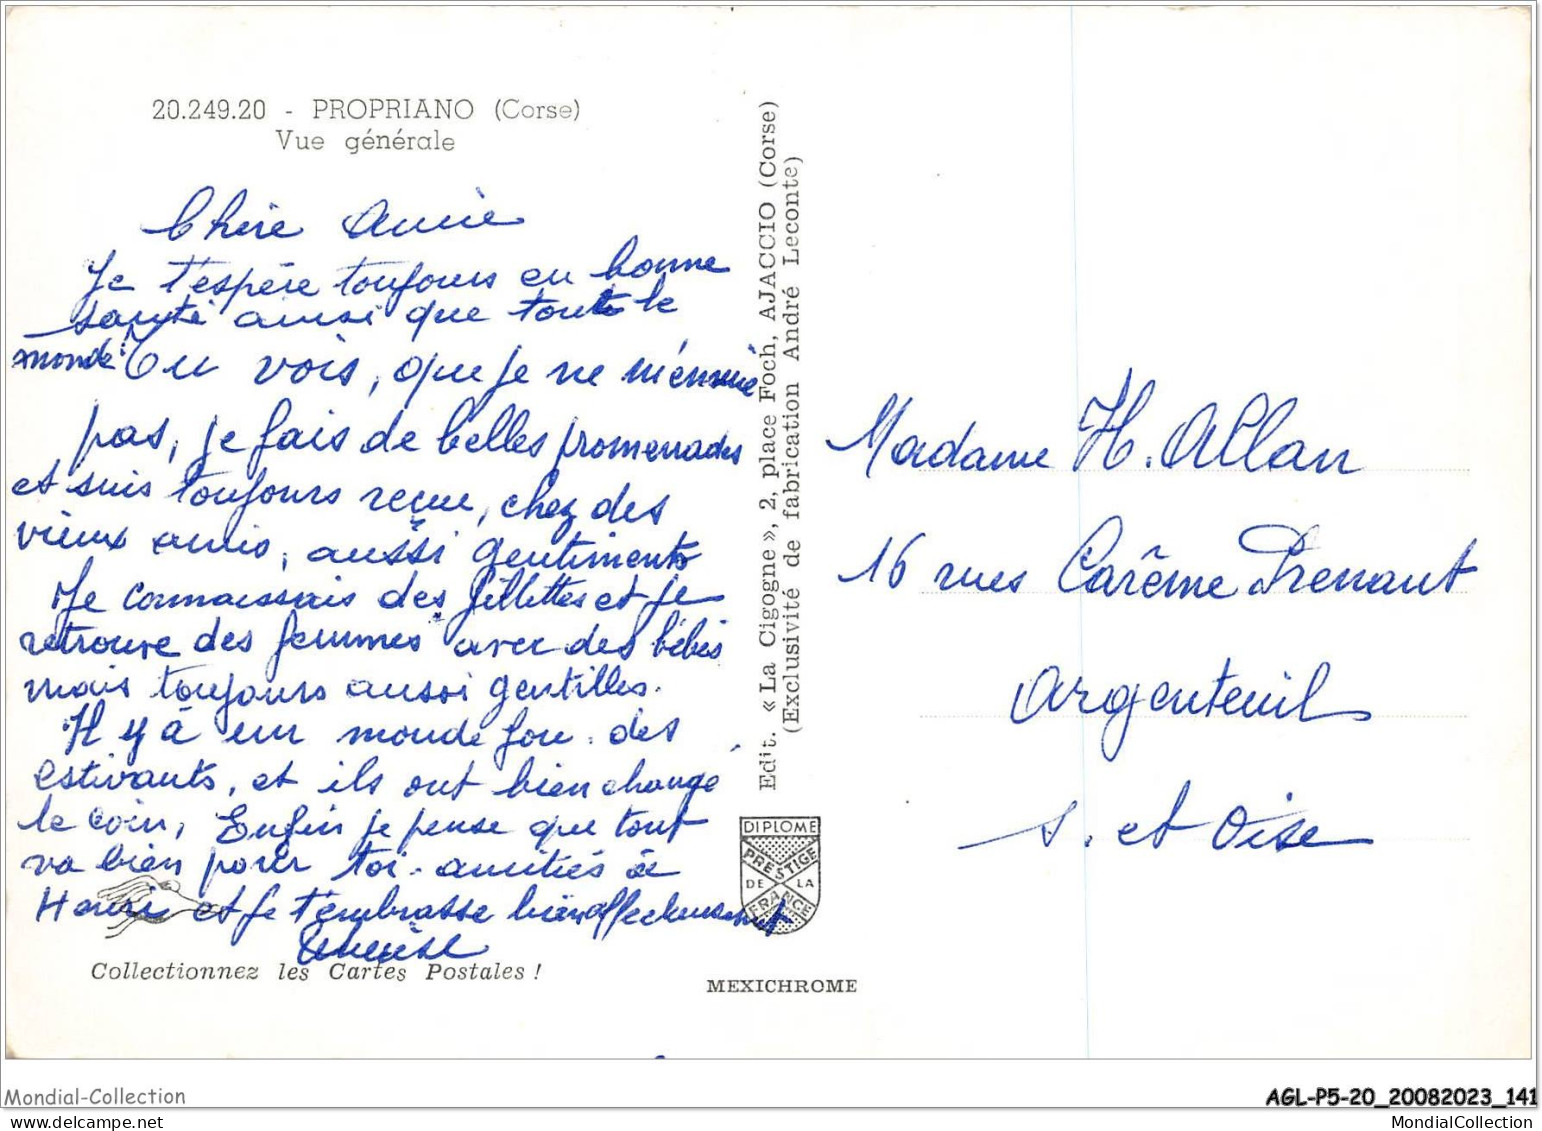 20.249.20 - PROPRIANO (Corse)
Vue générale
Chère Amie
Je t'espère toujours en bonne
santé ainsi que tout le
monde. Tu vois, que je ne m'ennuie
pas, je fais de belles promenades
et suis toujours reçue, chez des
vieux amis, aussi gentiments
Je connaissais des fillettes et je
retrouve des femmes avec des bébés
mais toujours aussi gentilles.
Il y à un monde fou. des
estivants, et ils ont bien changé
le coin, Enfin je pense que tout
va bien pour toi. amitiés à
Henri et je t'embrasse bien affectueusement
Collectionnez les Cartes Postales !
Edit. « La Cigogne », 2, place Foch, AJACCIO (Corse)
(Exclusivité de fabrication André Leconte)
DIPLOME
PRESTIGE
DE LA
FRANCE
MEXICHROME
Madame H. Allan
16 rues Carême Prenant
Argenteuil
S. et Oise
Mondial-Collection
AGL-P5-20_20082023_141
MondialCollection